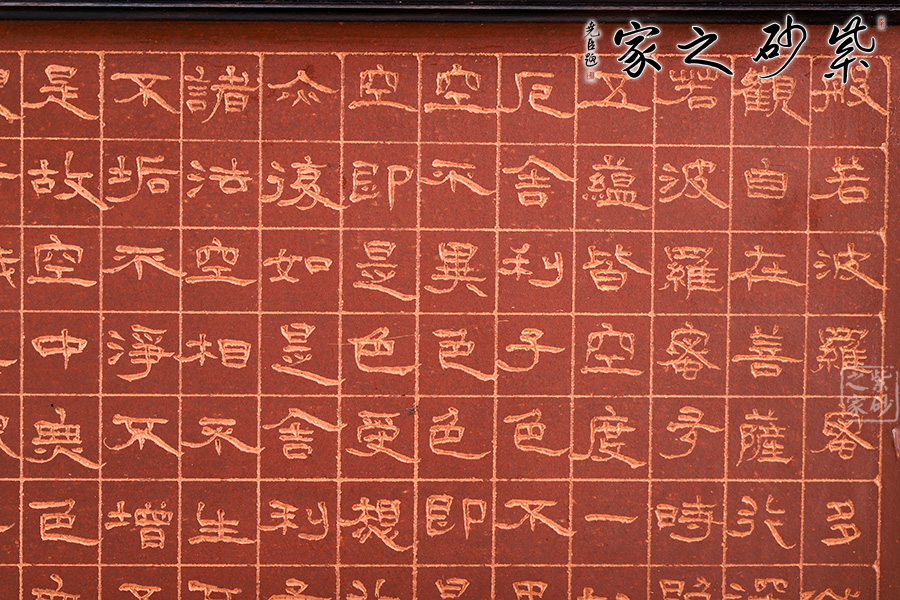 紫砂之家
堯臣題
般若波羅蜜多
觀自在菩薩行深
若波羅蜜多時照
五蘊皆空度一切
厄舍利子色不異
空不異色色即是
空即是色受想行
亦復如是舍利子
諸法空相不生不
不垢不淨不增不
是故空中無色無
紫砂之家